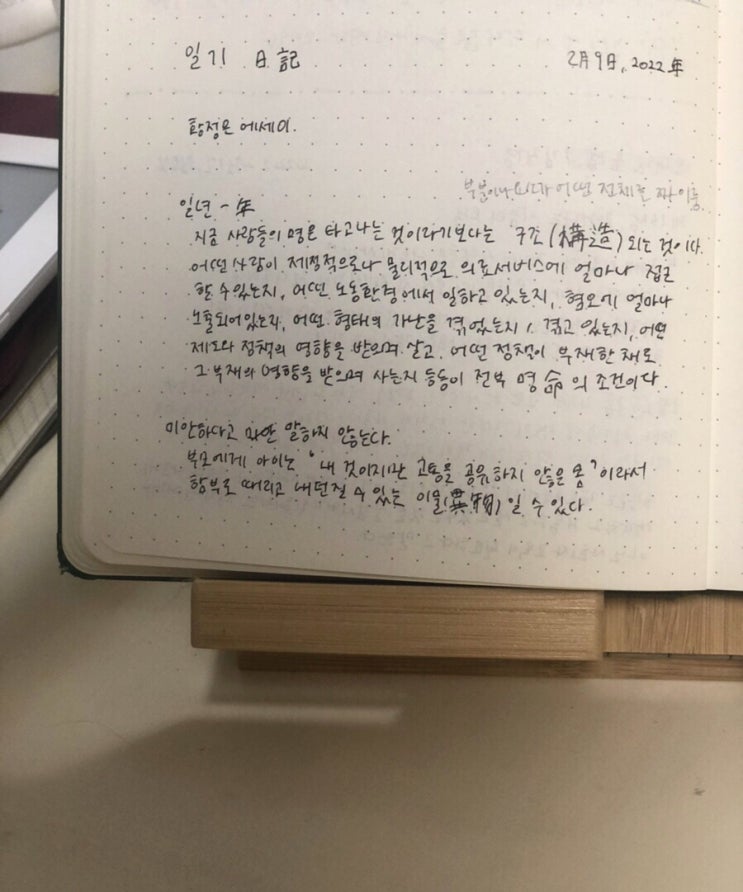 일기 日記 2月9日, 2022年
황정은 에세이.
부분이나 요소가 어떤 전체를 짜 이룸.
일년 一年
지금 사람들이 명은 타고나는 것이라기보다는 구조(構造)되는 것이다.
어떤 사람이 재정적으로나 물리적으로 의료서비스에 얼마나 접근
할 수 있는지, 어떤 노동환경에서 일하고 있는지, 혐오에 얼마나
노출되어 있는지, 어떤 형태의 가난을 겪었는지/겪고 있는지, 어떤
제도와 정책의 영향을 받으며 살고, 어떤 정책이 부재한 채로
그 부재의 영향을 받으며 사는지 등등이 전부 명 命의 조건이다.
미안하다고 말하지 않는다.
부모에게 아이는 '내 것이지만 고통을 공유하지 않은 몸'이라서
함부로 때리고 내던질 수 있는 이물(異物)일 수 있다.